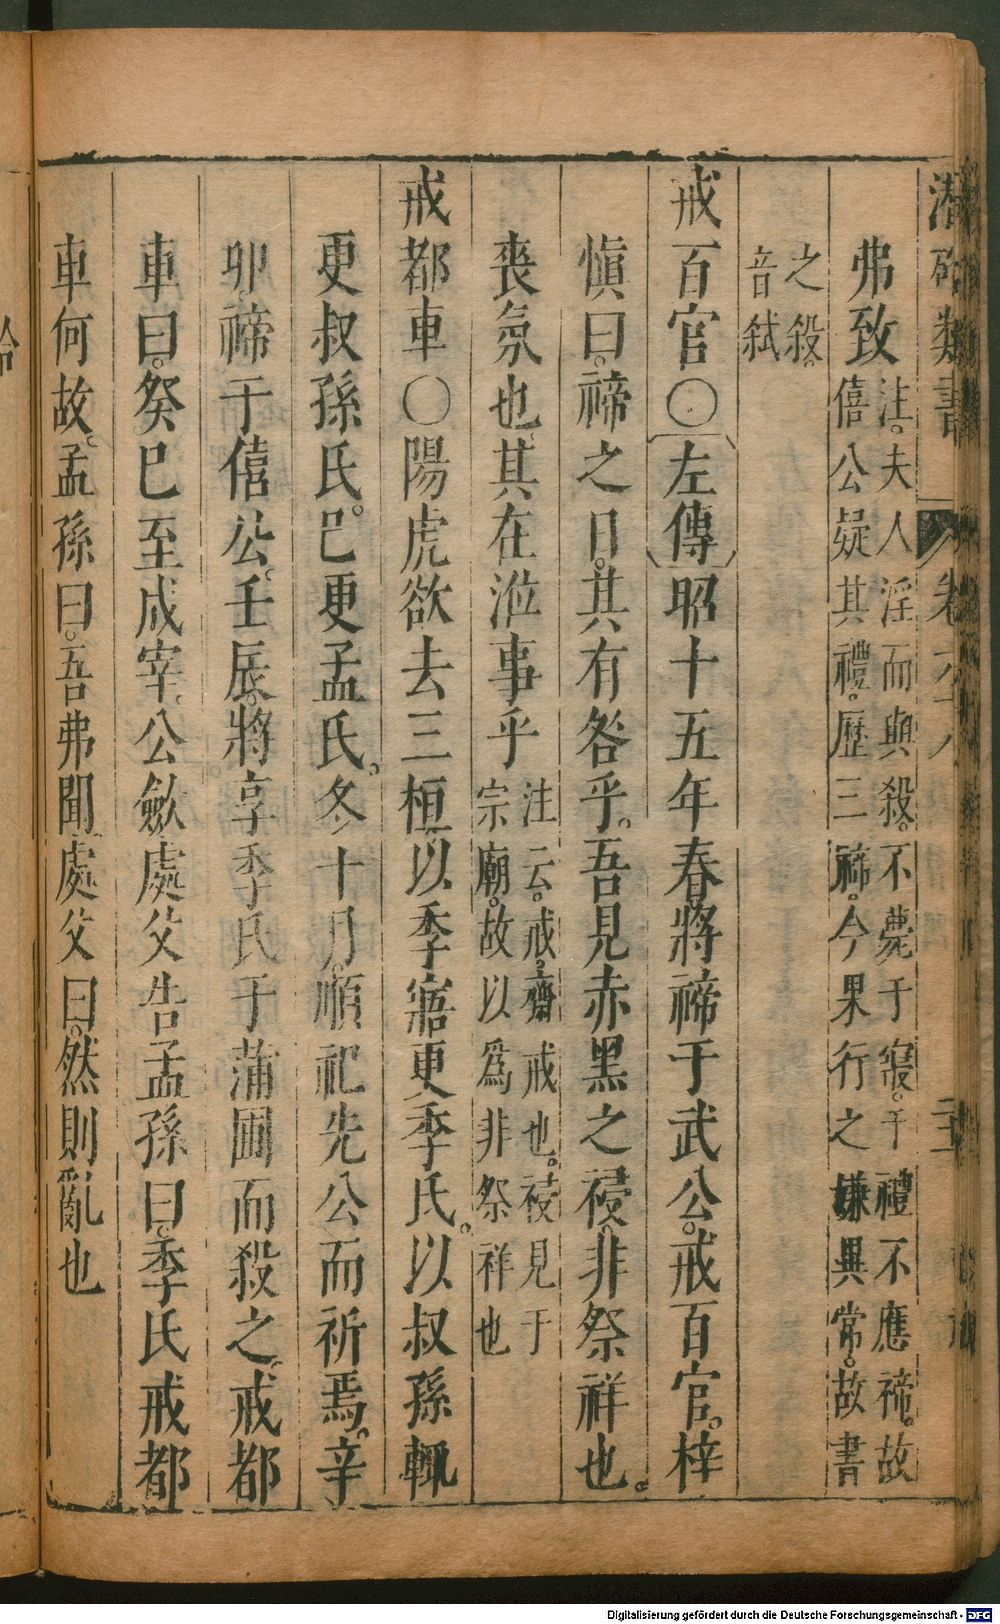 潛確類書 卷六十八
弗致
注。夫人淫而與殺。不薨于寢。于禮不應禘。故
僖公疑其禮。歷三禘。今果行之嫌異常。故書
之殺。
音弒
戒百官○〔左傳〕昭十五年春將禘于武公。戒百官。梓
慎曰。禘之日。其有咎乎。吾見赤黑之祲。非祭祥也。
喪氛也。其在涖事乎
注云。戒。齋戒也。祲見于
宗廟。故以爲非祭祥也
戒都車○陽虎欲去三桓。以季寤更季氏。以叔孫輒
更叔孫氏。巳更孟氏。冬十月。順祀先公而祈焉。辛
卯。禘于僖公。壬辰將享季氏于蒲圃而殺之。戒都
車曰。癸巳至成宰。公斂處父告孟孫曰。季氏戒都
車何故。孟孫曰。吾弗聞。處父曰。然則亂也
Digitalisierung gefördert durch die Deutsche Forschungsgemeinschaft - DFG